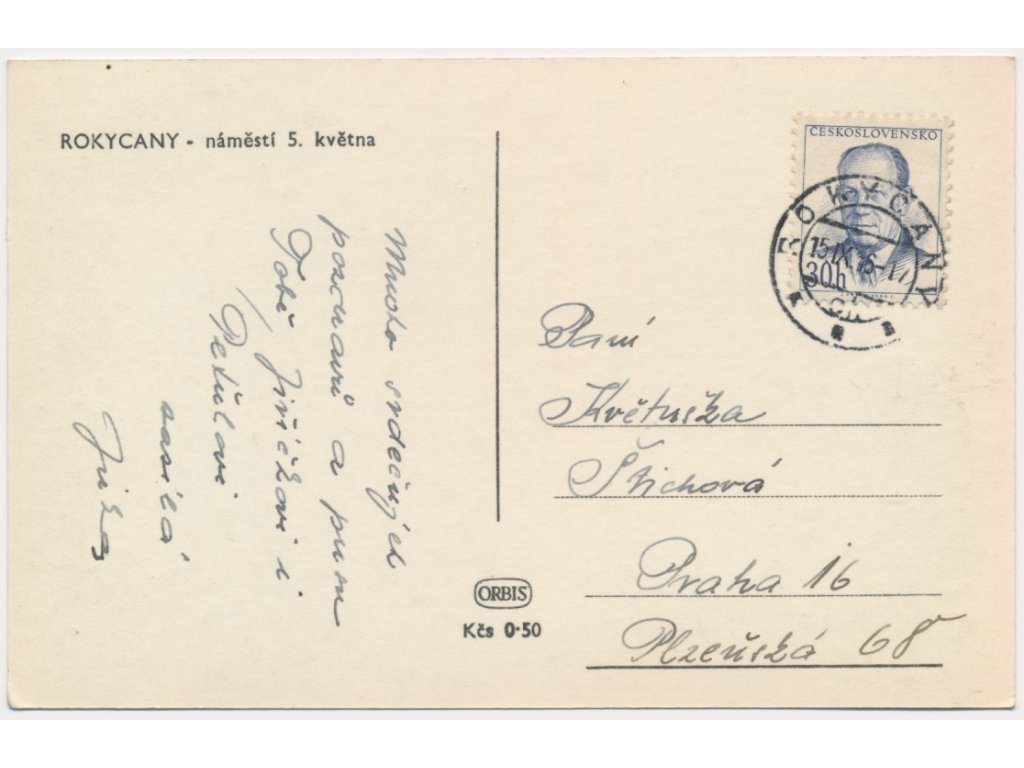 ROKYCANY - náměstí 5. května
Mnoho srdečných
pozdravů a pusu
Tobě Jiříčkovi i
Peťulovi
zasílá
Jirka
ČESKOSLOVENSKO
ROKYCANY
15.IX.
30h
Paní
Květuška
Štichová
Praha 16
Plzeňská 68
ORBIS
Kčs 0·50